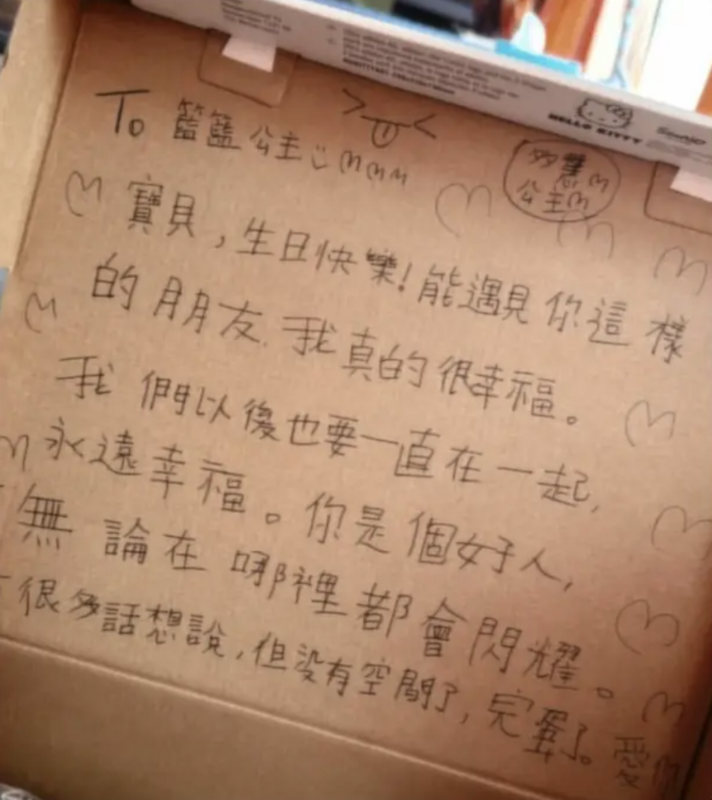 HELLO KITTY
Sanrio
To 籃籃公主
多慧
公主
寶貝，生日快樂！能遇見你這樣
的朋友，我真的很幸福。
我們以後也要一直在一起，
永遠幸福。你是個好人，
無論在哪裡都會閃耀。
很多話想說，但没有空間了，完蛋了。愛